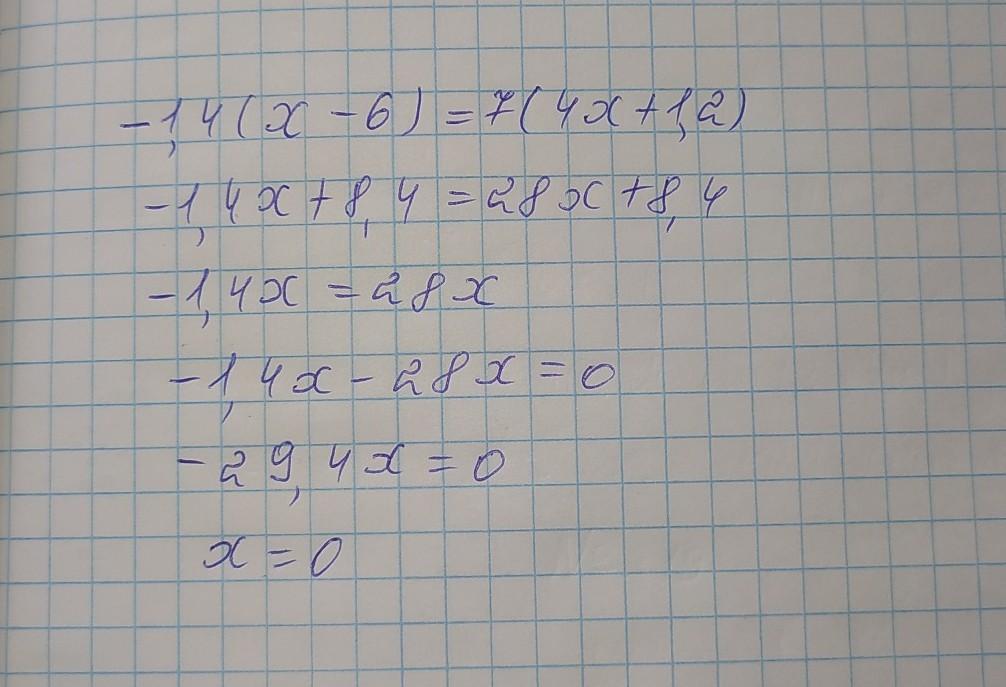 -1,4(x-6)=7(4x+1,2)
-1,4x+8,4=28x+8,4
-1,4x=28x
-1,4x-28x=0
-29,4x=0
x=0